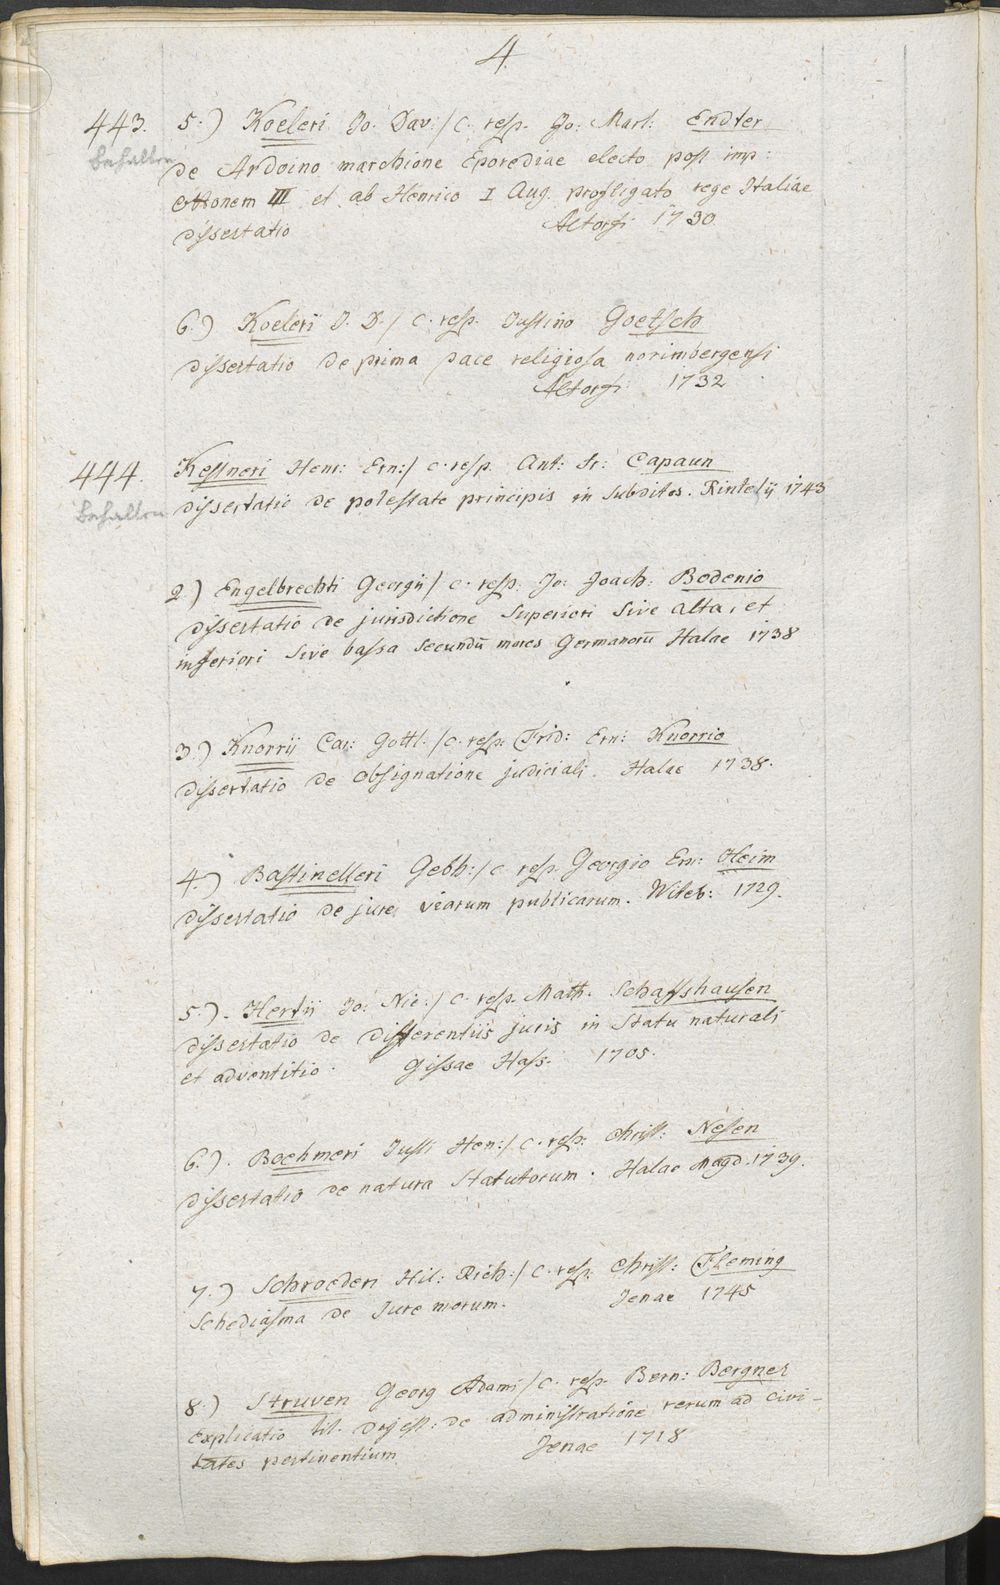 4.
443. 5.) Koeleri Jo. Dav:/ c. resp. Jo: Mart: Endter
behalten
de Ardoino marchione Eporediae electo post imp:
Ottonem III et ab Henrico I Aug. profligato rege Italiae
dissertatio Altorfi 1730
6.) Koeleri J. D./ c. resp. Justino Goetsch
dissertatio de prima pace religiosa norimbergensi
Altorfi 1732
444. Kestneri Henr: Ern:/ c. resp. Ant: Fr: Capaun
behalten
dissertatio de potestate principis in subditos. Rintelij 1743
2) Engelbrechti Georgii/ c. resp. Jo: Joach: Bodenio
dissertatio de jurisdictione superiori sive alta, et
inferiori sive bassa secundū mores Germanorū Halae 1738
3.) Knorrii Car: Gottl:/ c. resp: Frid: Ern: Knorrio
dissertatio de obsignatione judiciali. Halae 1738.
4.) Bastinelleri Gebh:/ c. resp. Georgio Ern: Heim
dissertatio de jure viarum publicarum. Witeb: 1729.
5.). Hertii Jo: Nic:/ c. resp. Math. Schaffshausen
dissertatio de differentiis juris in statu naturali
et adventitio. Gissae Hass. 1705.
6.). Boehmeri Justi Hen:/ c. resp: Christ: Nesen
dissertatio de natura statutorum. Halae Magd. 1739.
7.) Schroederi Hil: Rich:/ c. resp: Christ: Fleming
Schediasma de Jure morum. Jenae 1745
8.) Struven Georg Adami/ c. resp. Bern: Bergner
Explicatio tit. Digest: de administratione rerum ad civi-
tates pertinentium Jenae 1718